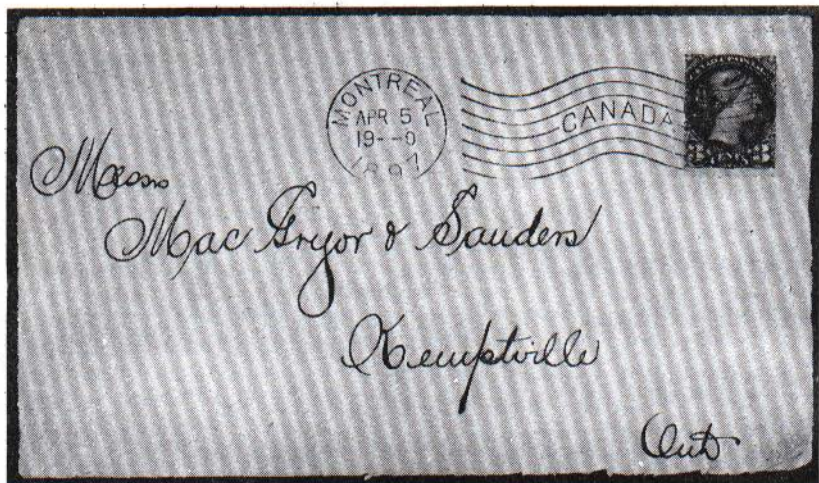 MONTREAL
APR 5
19--0
1897
CANADA
Messrs
Mac Gregor & Sauders
Kemptville
Ont